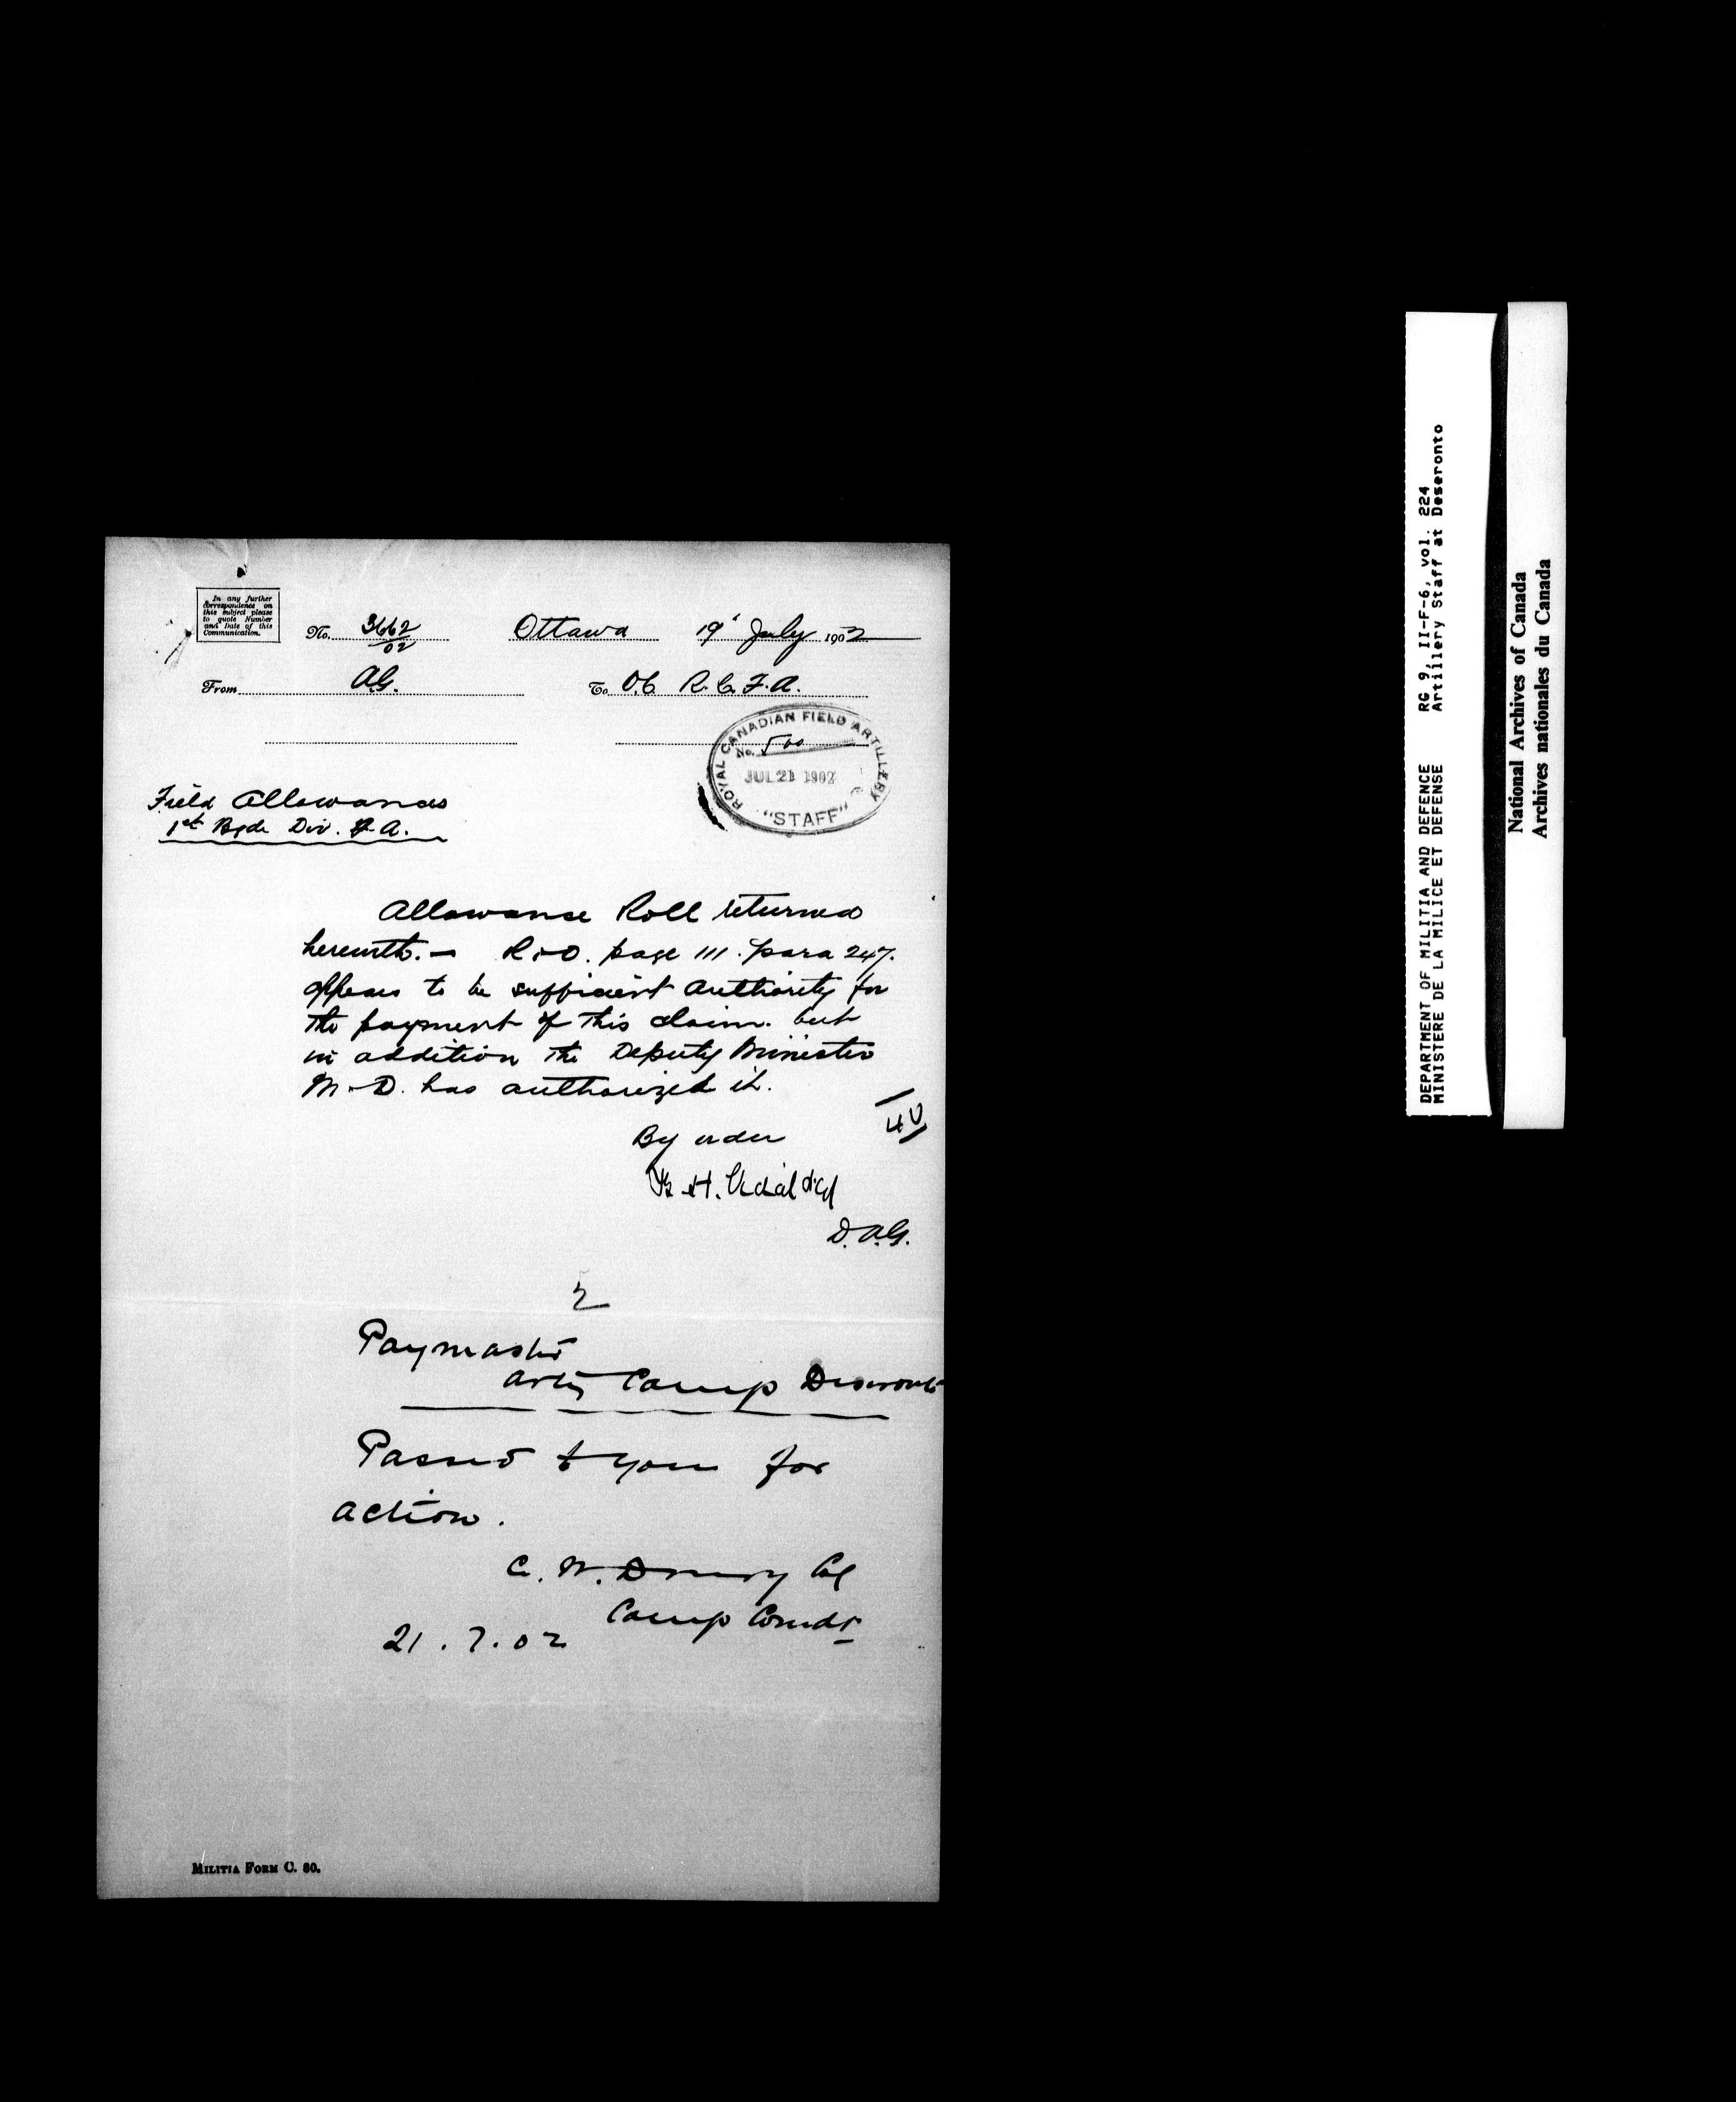 In any further
correspondence on
this subject please
to quote Number
and Date of this
Communication.
No. 3662/02 Ottawa 19' July 1902
From A.G. To O.C. R.C.F.A.
ROYAL CANADIAN FIELD ARTILLERY
No. 500
JUL 21 1902
"STAFF"
Field Allowances
1st Bgde Div. F.A.
Allowance Roll returned
herewith. — R & O. page 111. para 247.
appears to be sufficient authority for
the payment of this claim. but
in addition the Deputy Minister
M & D. has authorized it.
By order
B H. Vidal
D.A.G.
2
Paymaster
Arty Camp Deseronto
Passed to you for
action.
C. W. Drury Col
Camp Comdt
21.7.02
MILITIA FORM C. 80.
DEPARTMENT OF MILITIA AND DEFENCE RG 9, II-F-6, vol. 224
MINISTERE DE LA MILICE ET DEFENSE Artillery Staff at Deseronto
National Archives of Canada
Archives nationales du Canada